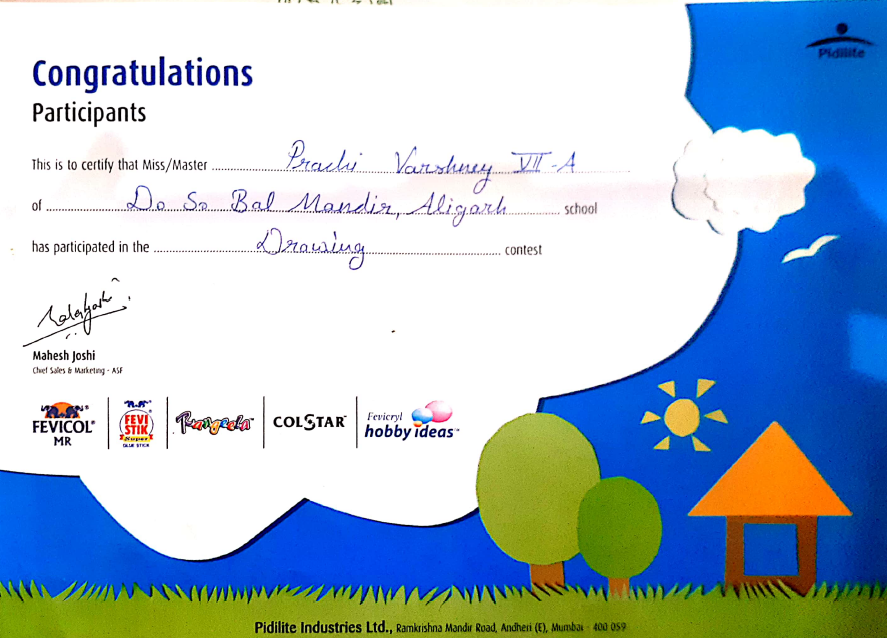 Pidilite
Congratulations
Participants
This is to certify that Miss/Master Prachi Varshney VII-A
of Do So Bal Mandir, Aligarh school
has participated in the Drawing contest
Mahesh Joshi
Chief Sales & Marketing - ASF
FEVICOL® MR
FEVI STIK Super GLUE STICK
Rangeela™
COLSTAR™
Fevicryl hobby ideas™
Pidilite Industries Ltd., Ramkrishna Mandir Road, Andheri (E), Mumbai - 400 059